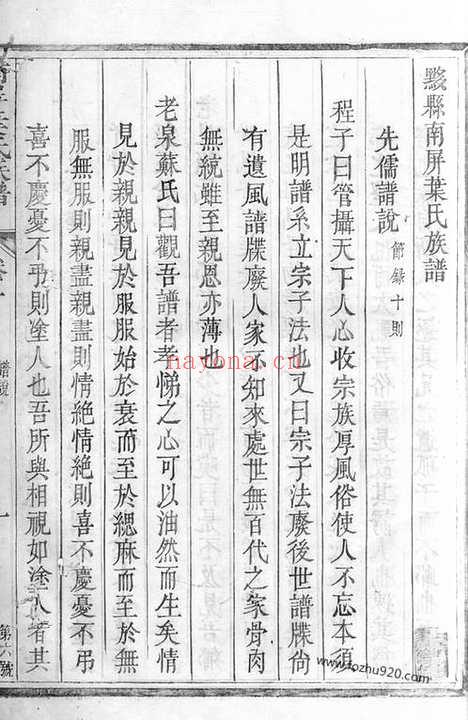 黟縣南屏葉氏族譜
先儒譜說 節錄十則
程子曰管攝天下人心收宗族厚風俗使人不忘本須
是明譜系立宗子法也又曰宗子法廢後世譜牒尙
有遺風譜牒廢人家不知來處世無百代之家骨肉
無統雖至親恩亦薄也
老泉蘇氏曰觀吾譜者孝悌之心可以油然而生矣情
見於親親見於服服始於衰而至於緦麻而至於無
服無服則親盡親盡則情絕情絕則喜不慶憂不弔
喜不慶憂不弔則塗人也吾所與相視如塗人者其
譜說
一
第六號
nayona.cn
www.fozhu920.com